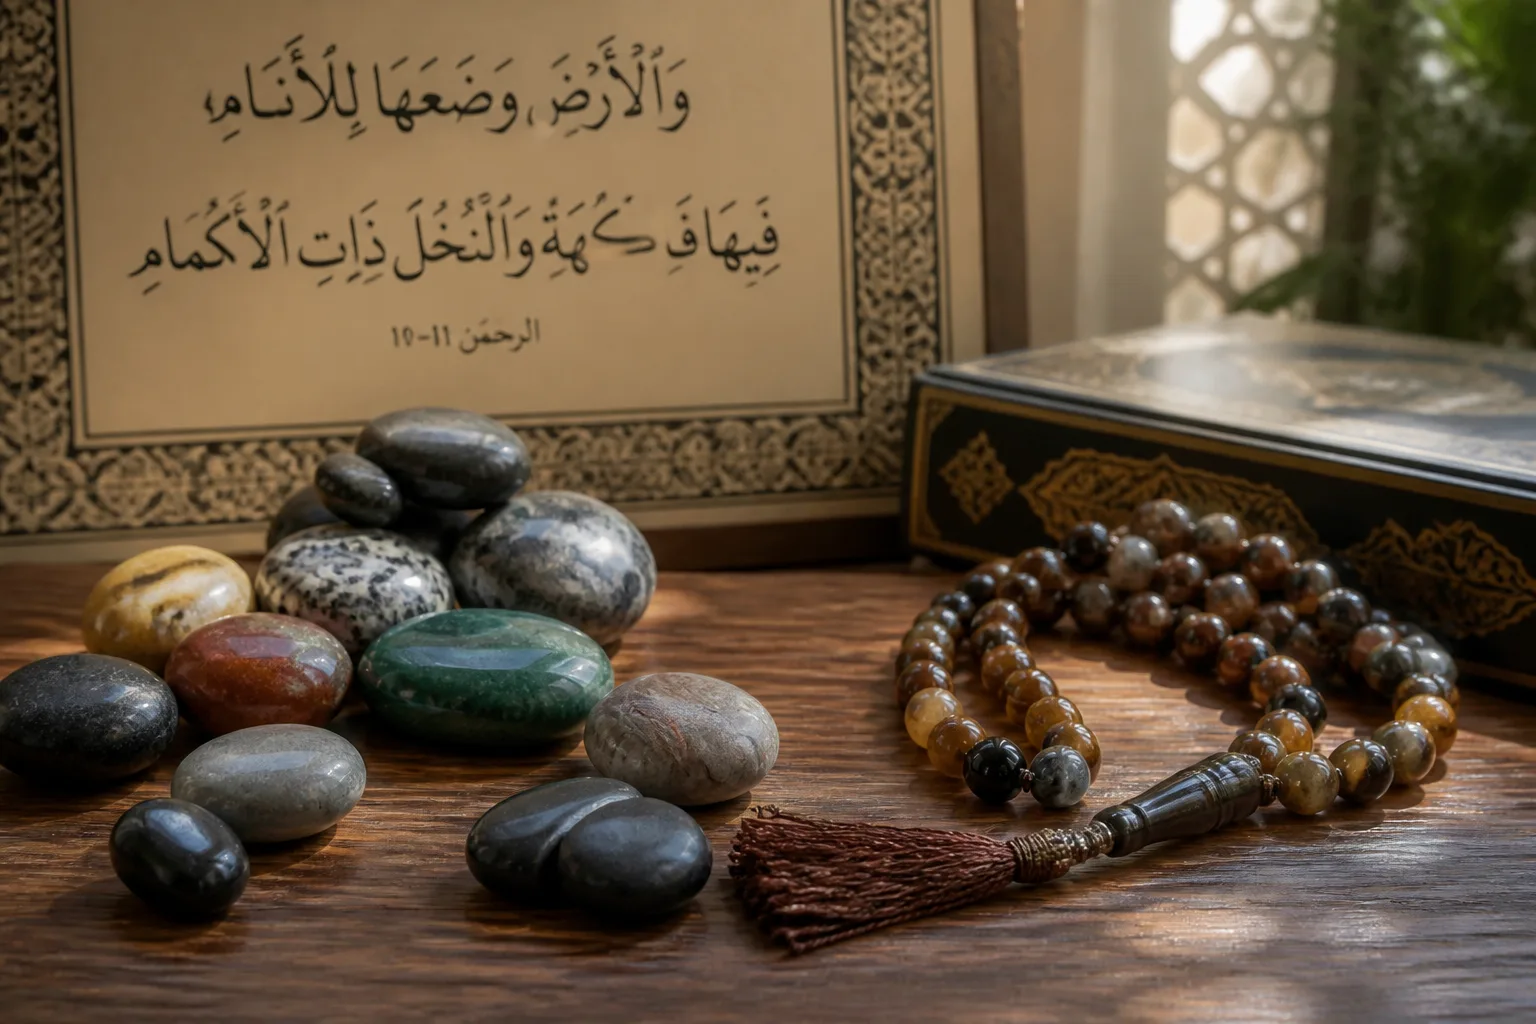 وَٱلْأَرْضَ وَضَعَهَا لِلْأَنَامِ
فِيهَا فَـٰكِهَةٌ وَٱلنَّخْلُ ذَاتِ ٱلْأَكْمَامِ
الرحمن 10-11